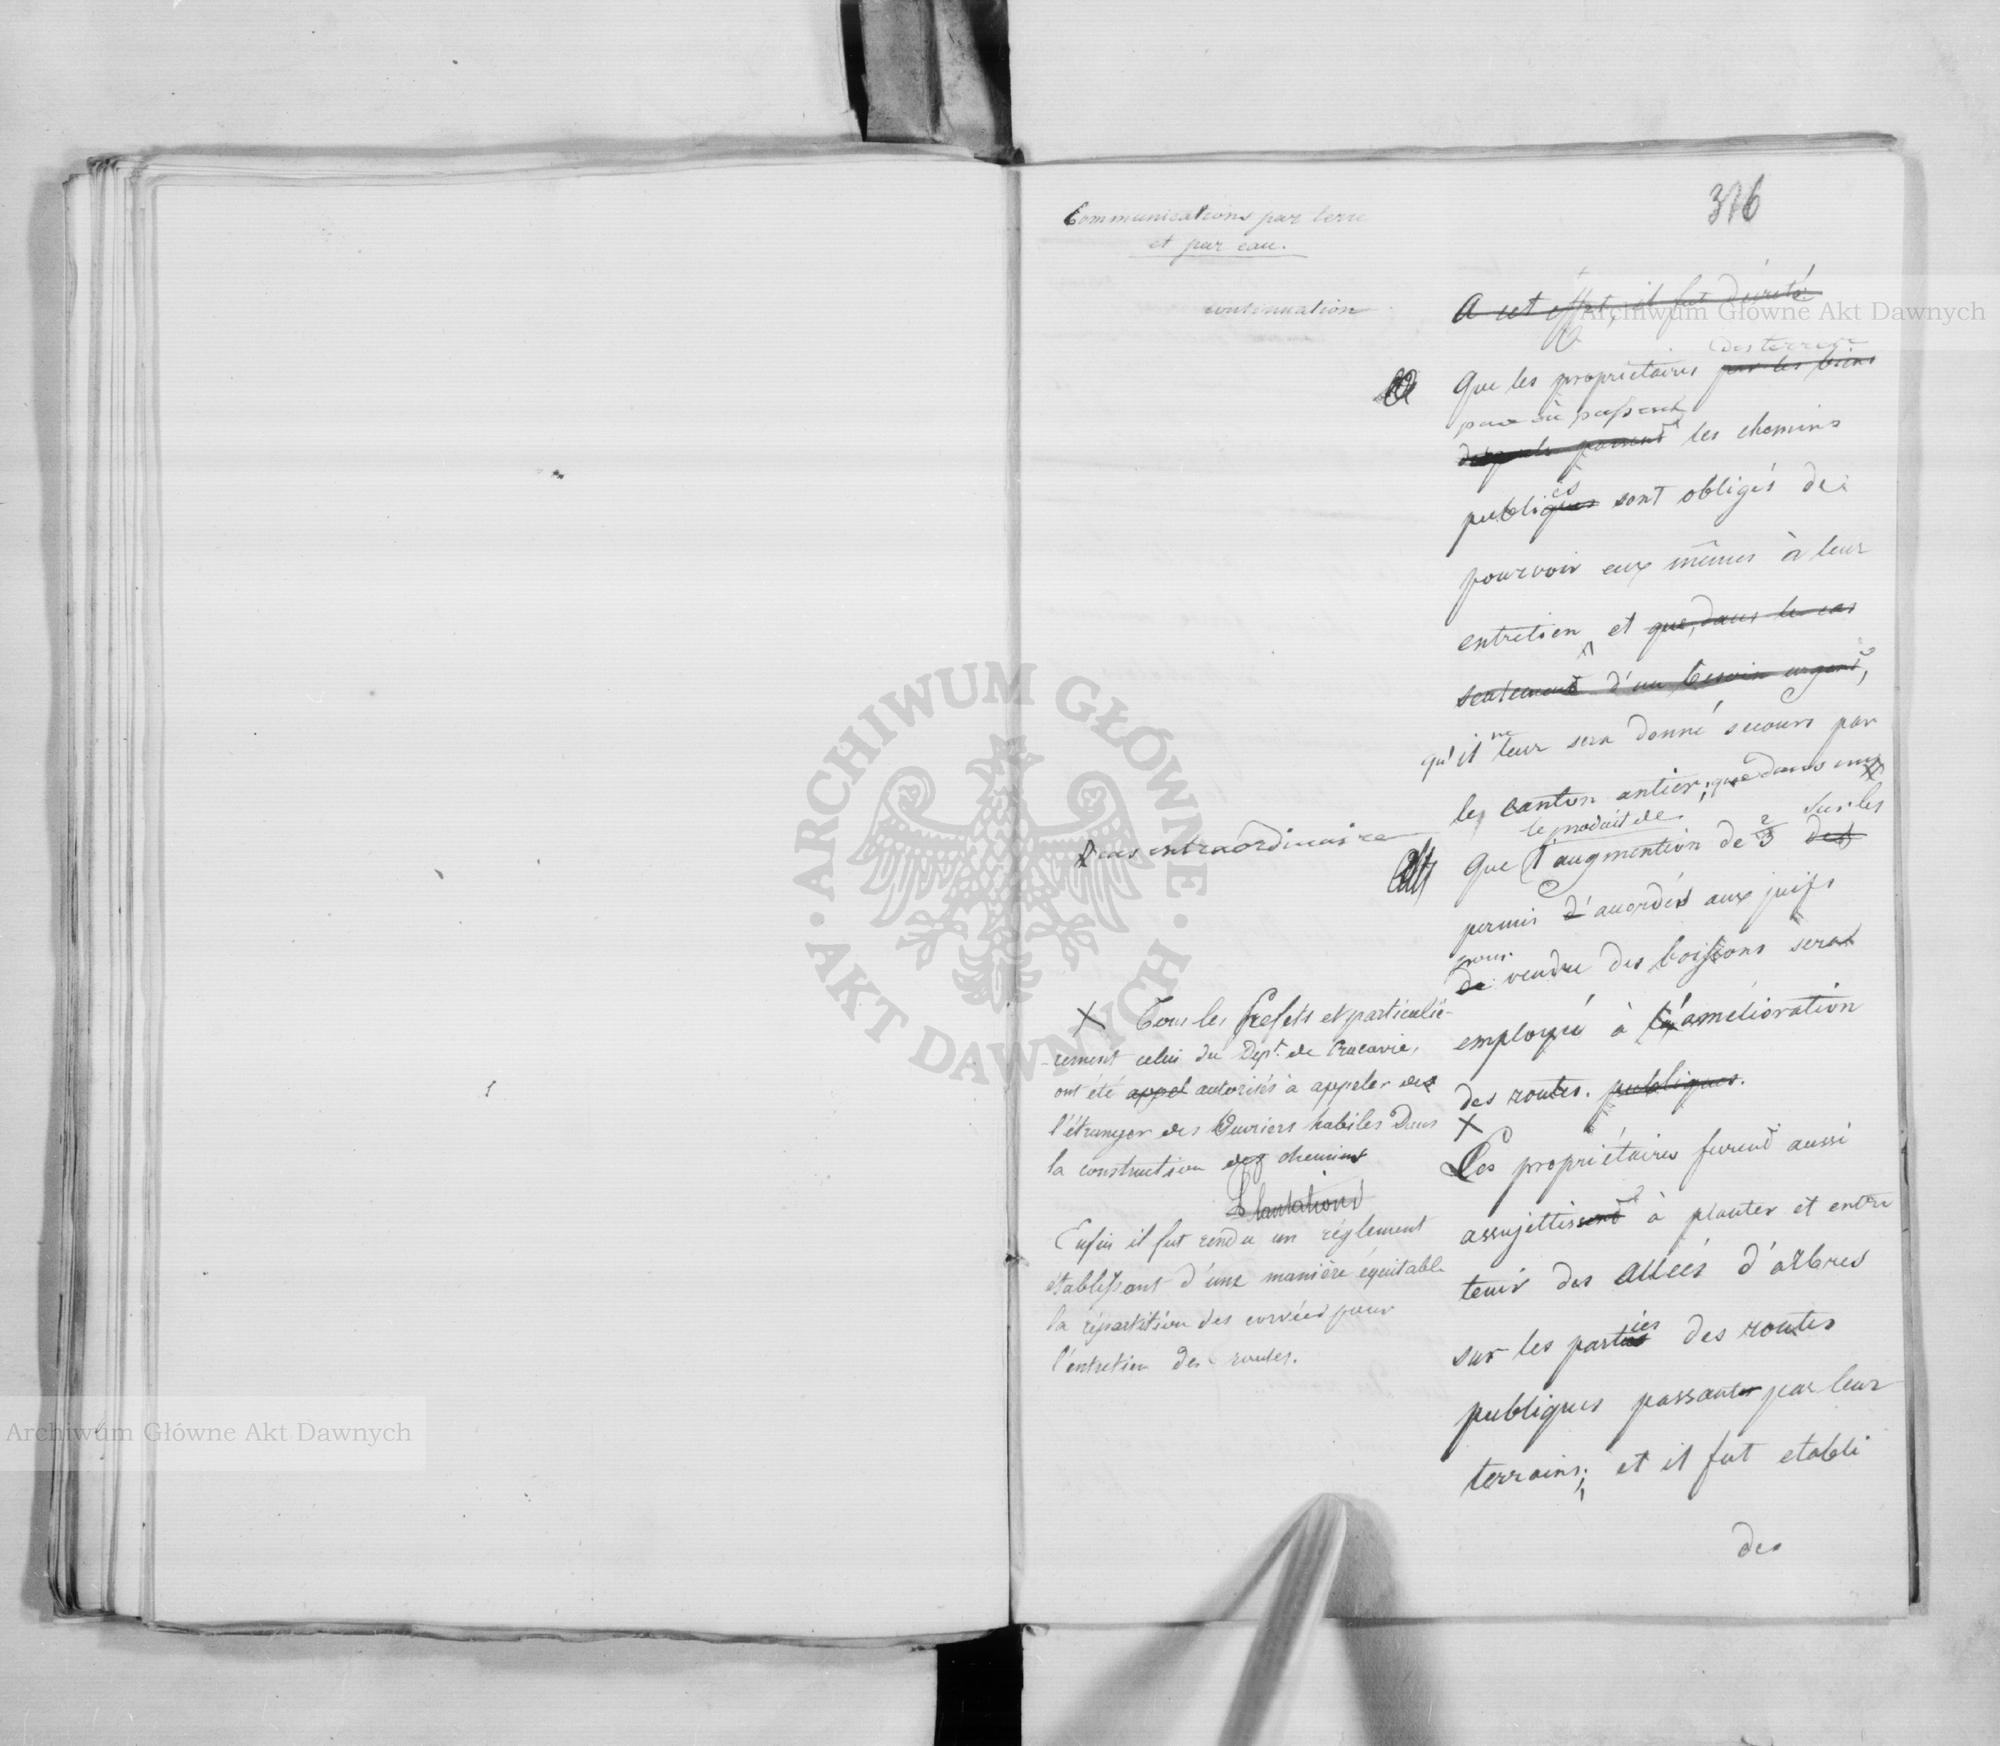 376
Communications par terre
et par eau.
continuation
A cet effet, il fut décrété
des terrains
Que les propriétaires par les biens
par où passent
desquels passent les chemins
publiques sont obligés de
pourvoir eux mêmes à leur
entretien et que, dans le cas
seulement d'un besoin urgent,
qu'il ne leur sera donné secours par
les canton antier; que dans un
cas extraordinaire
le produit de sur les
Que l'augmention de 2/3 des
permis d'accordés aux juifs
pour
de vendre des boissons sera
employé à l'amélioration
des routes. publiques.
X
Les propriétaires furent aussi
assujettis à planter et entre
tenir des allées d'arbres
sur les parties des routes
publiques passant par leur
terrains; et il fut etabli
des
X Tous les Prefets et particuliè-
-rement celui du Dept. de Cracovie,
ont été appel autorisés à appeler de
l'étranger des Ouvriers habiles dans
la construction des chemins
Plantations
Enfin il fut rendu un réglement
établissant d'une manière équitable
la répartition des corvées pour
l'entretien des routes.
Archiwum Główne Akt Dawnych
ARCHIWUM GŁÓWNE AKT DAWNYCH
Archiwum Główne Akt Dawnych